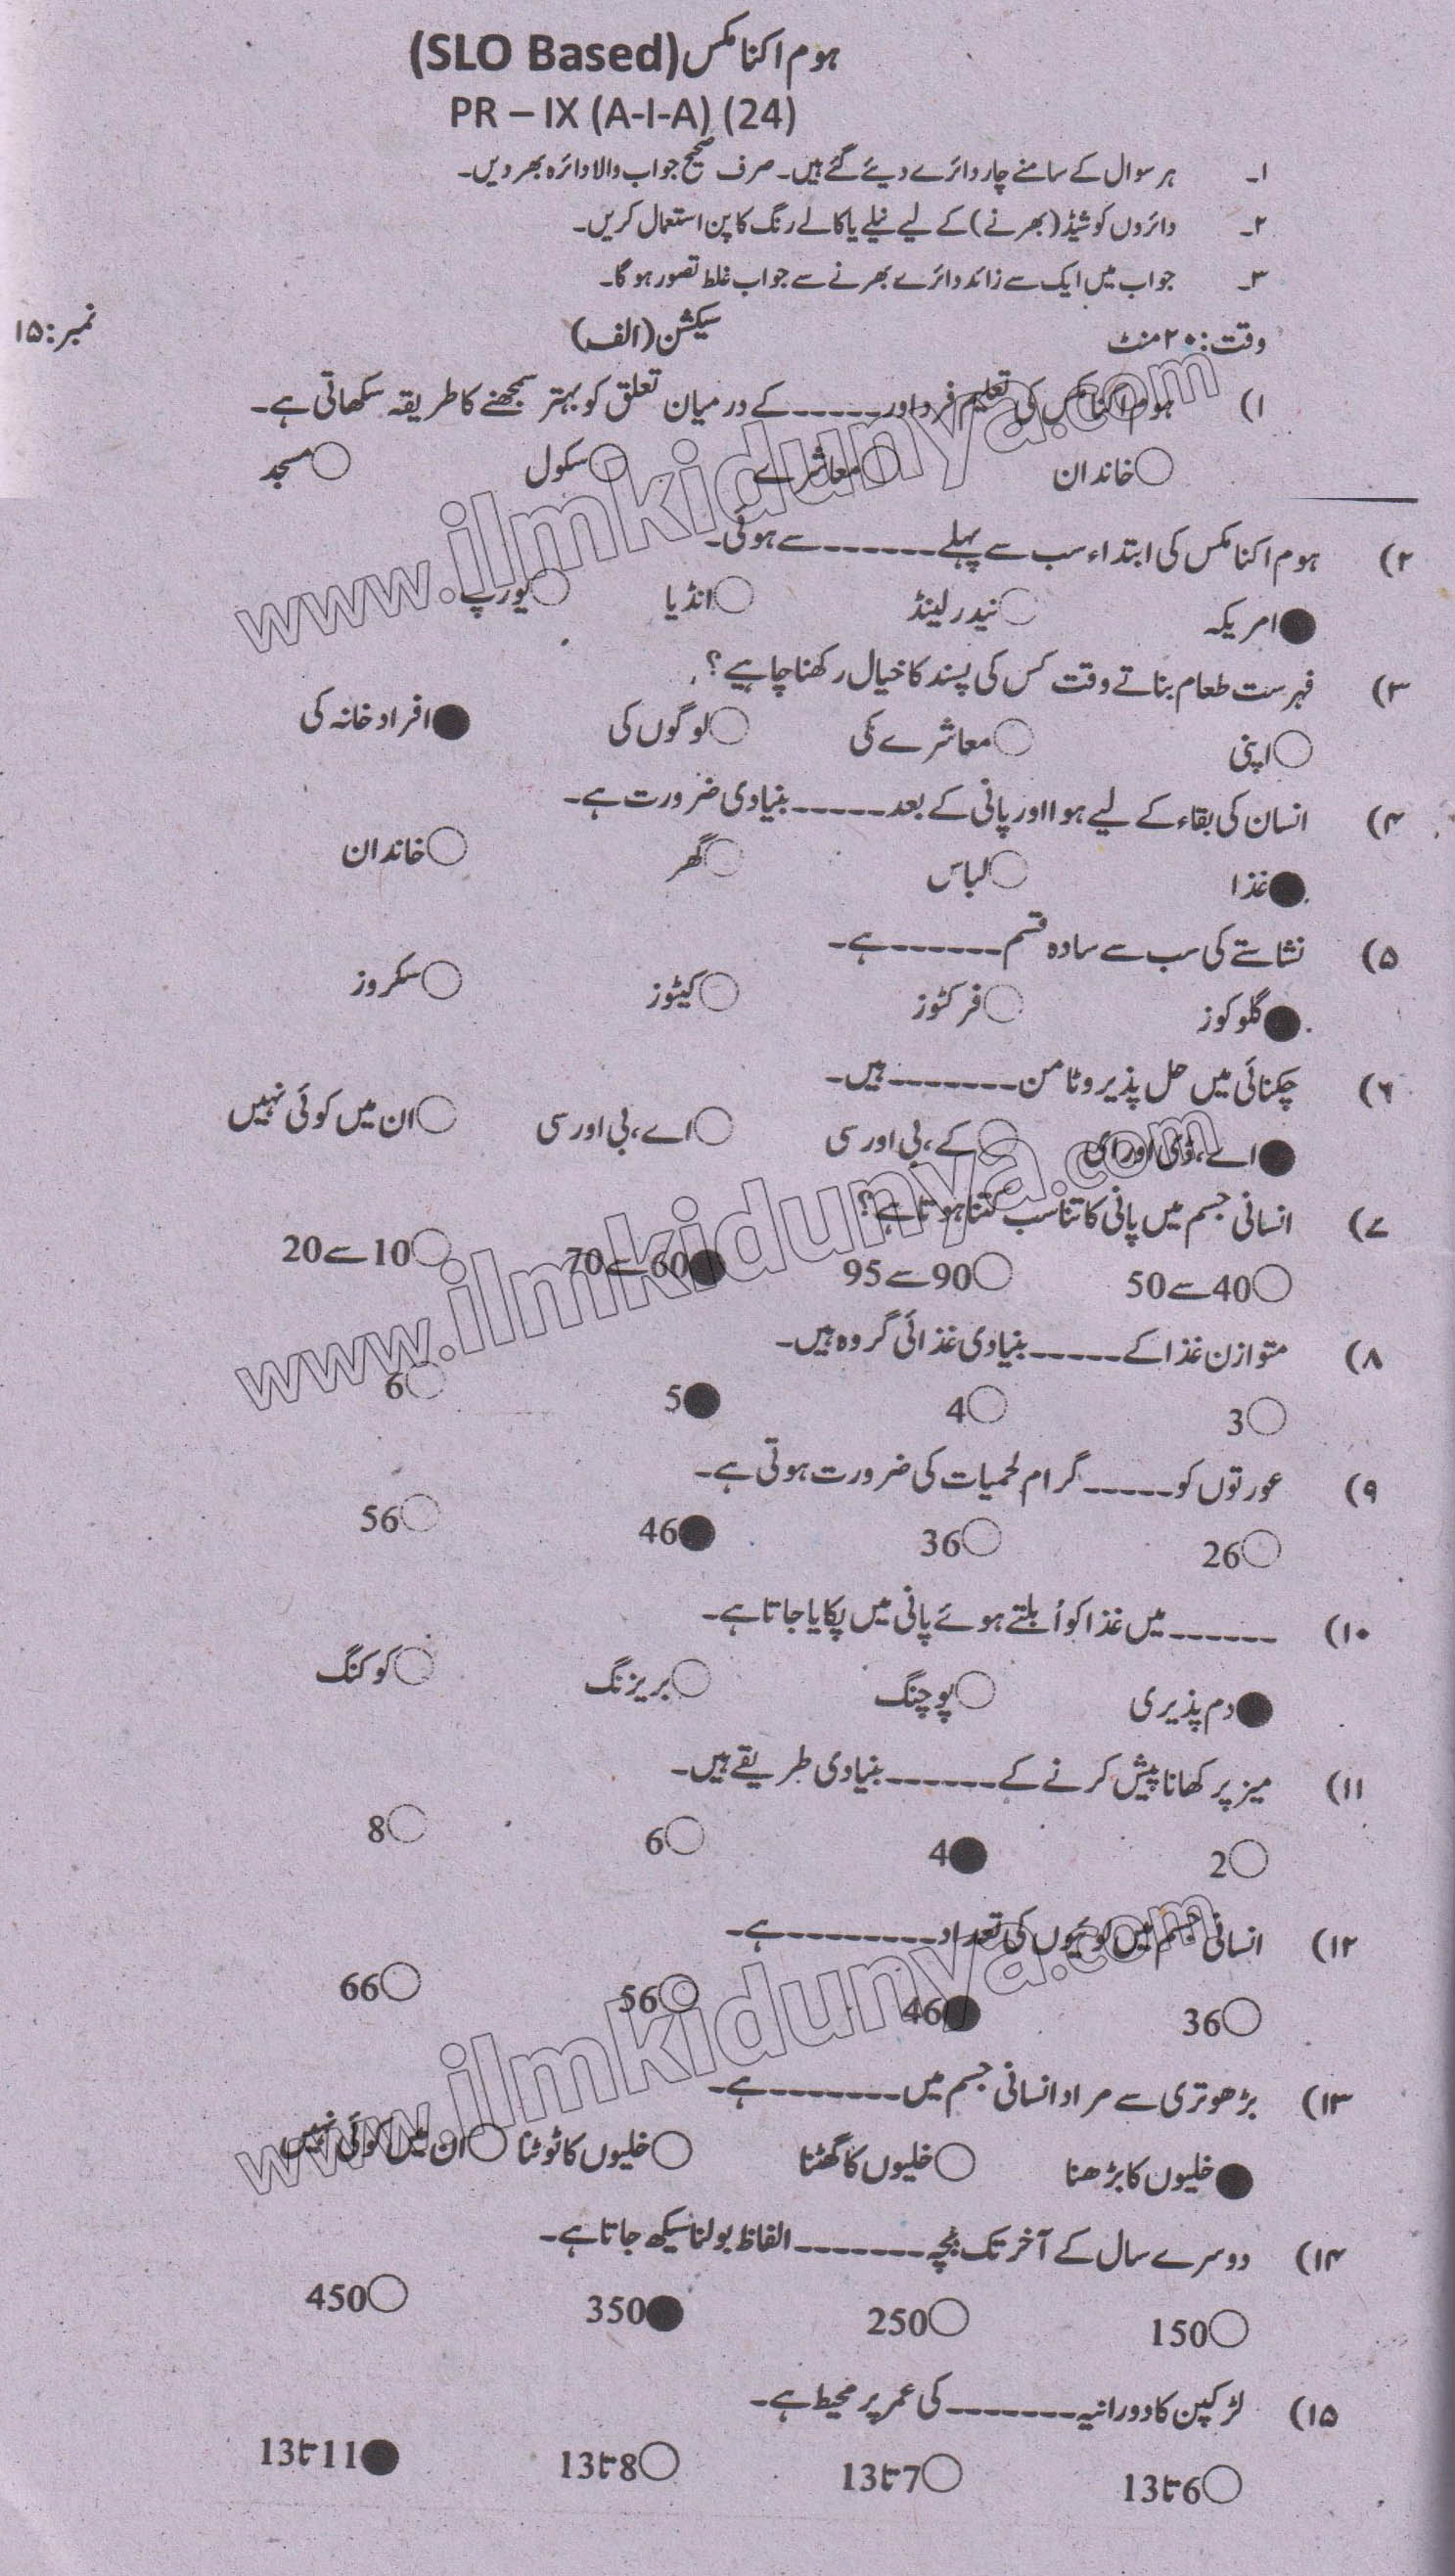 ہوم اکنامکس (SLO Based)
PR – IX (A-I-A) (24)
۱۔ ہر سوال کے سامنے چار دائرے دیئے گئے ہیں۔ صرف صحیح جواب والا دائرہ بھر دیں۔
۲۔ دائروں کو شیڈ (بھرنے) کے لیے نیلے یا کالے رنگ کا پن استعمال کریں۔
۳۔ جواب میں ایک سے زائد دائرے بھرنے سے جواب غلط تصور ہو گا۔
وقت: ۲۰ منٹ سیکشن (الف) نمبر: ۱۵
۱) ہوم اکنامکس کی تعلیم فرد اور ----- کے درمیان تعلق کو بہتر سمجھنے کا طریقہ سکھاتی ہے۔
خاندان معاشرے سکول مسجد
۲) ہوم اکنامکس کی ابتداء سب سے پہلے ------ سے ہوئی۔
امریکہ نیدرلینڈ انڈیا یورپ
۳) فہرست طعام بناتے وقت کس کی پسند کا خیال رکھنا چاہیے؟
اپنی معاشرے کی لوگوں کی افراد خانہ کی
۴) انسان کی بقاء کے لیے ہوا اور پانی کے بعد ----- بنیادی ضرورت ہے۔
غذا لباس گھر خاندان
۵) نشاستے کی سب سے سادہ قسم ------ ہے۔
گلوکوز فرکٹوز کیٹوز سکروز
۶) چکنائی میں حل پذیر وٹامن ------- ہیں۔
اے، ڈی اور ای کے، بی اور سی اے، بی اور سی ان میں کوئی نہیں
۷) انسانی جسم میں پانی کا تناسب کتنا ہوتا ہے؟
40 سے 50 90 سے 95 60 سے 70 10 سے 20
۸) متوازن غذا کے ----- بنیادی غذائی گروہ ہیں۔
3 4 5 6
۹) عورتوں کو ----- گرام لحمیات کی ضرورت ہوتی ہے۔
26 36 46 56
۱۰) ------ میں غذا کو اُبلتے ہوئے پانی میں پکایا جاتا ہے۔
دم پذیری پوچنگ بریزنگ کوکنگ
۱۱) میز پر کھانا پیش کرنے کے ------ بنیادی طریقے ہیں۔
2 4 6 8
۱۲) انسانی جسم میں لونیوں کی تعداد --------- ہے۔
36 46 56 66
۱۳) بڑھوتری سے مراد انسانی جسم میں ------- ہے۔
خلیوں کا بڑھنا خلیوں کا گھٹنا خلیوں کا ٹوٹنا ان میں کوئی نہیں
۱۴) دوسرے سال کے آخر تک بچہ ------- الفاظ بولنا سیکھ جاتا ہے۔
150 250 350 450
۱۵) لڑکپن کا دورانیہ ------- کی عمر پر محیط ہے۔
6 تا 13 7 تا 13 8 تا 13 11 تا 13
www.ilmkidunya.com
www.ilmkidunya.com
www.ilmkidunya.com